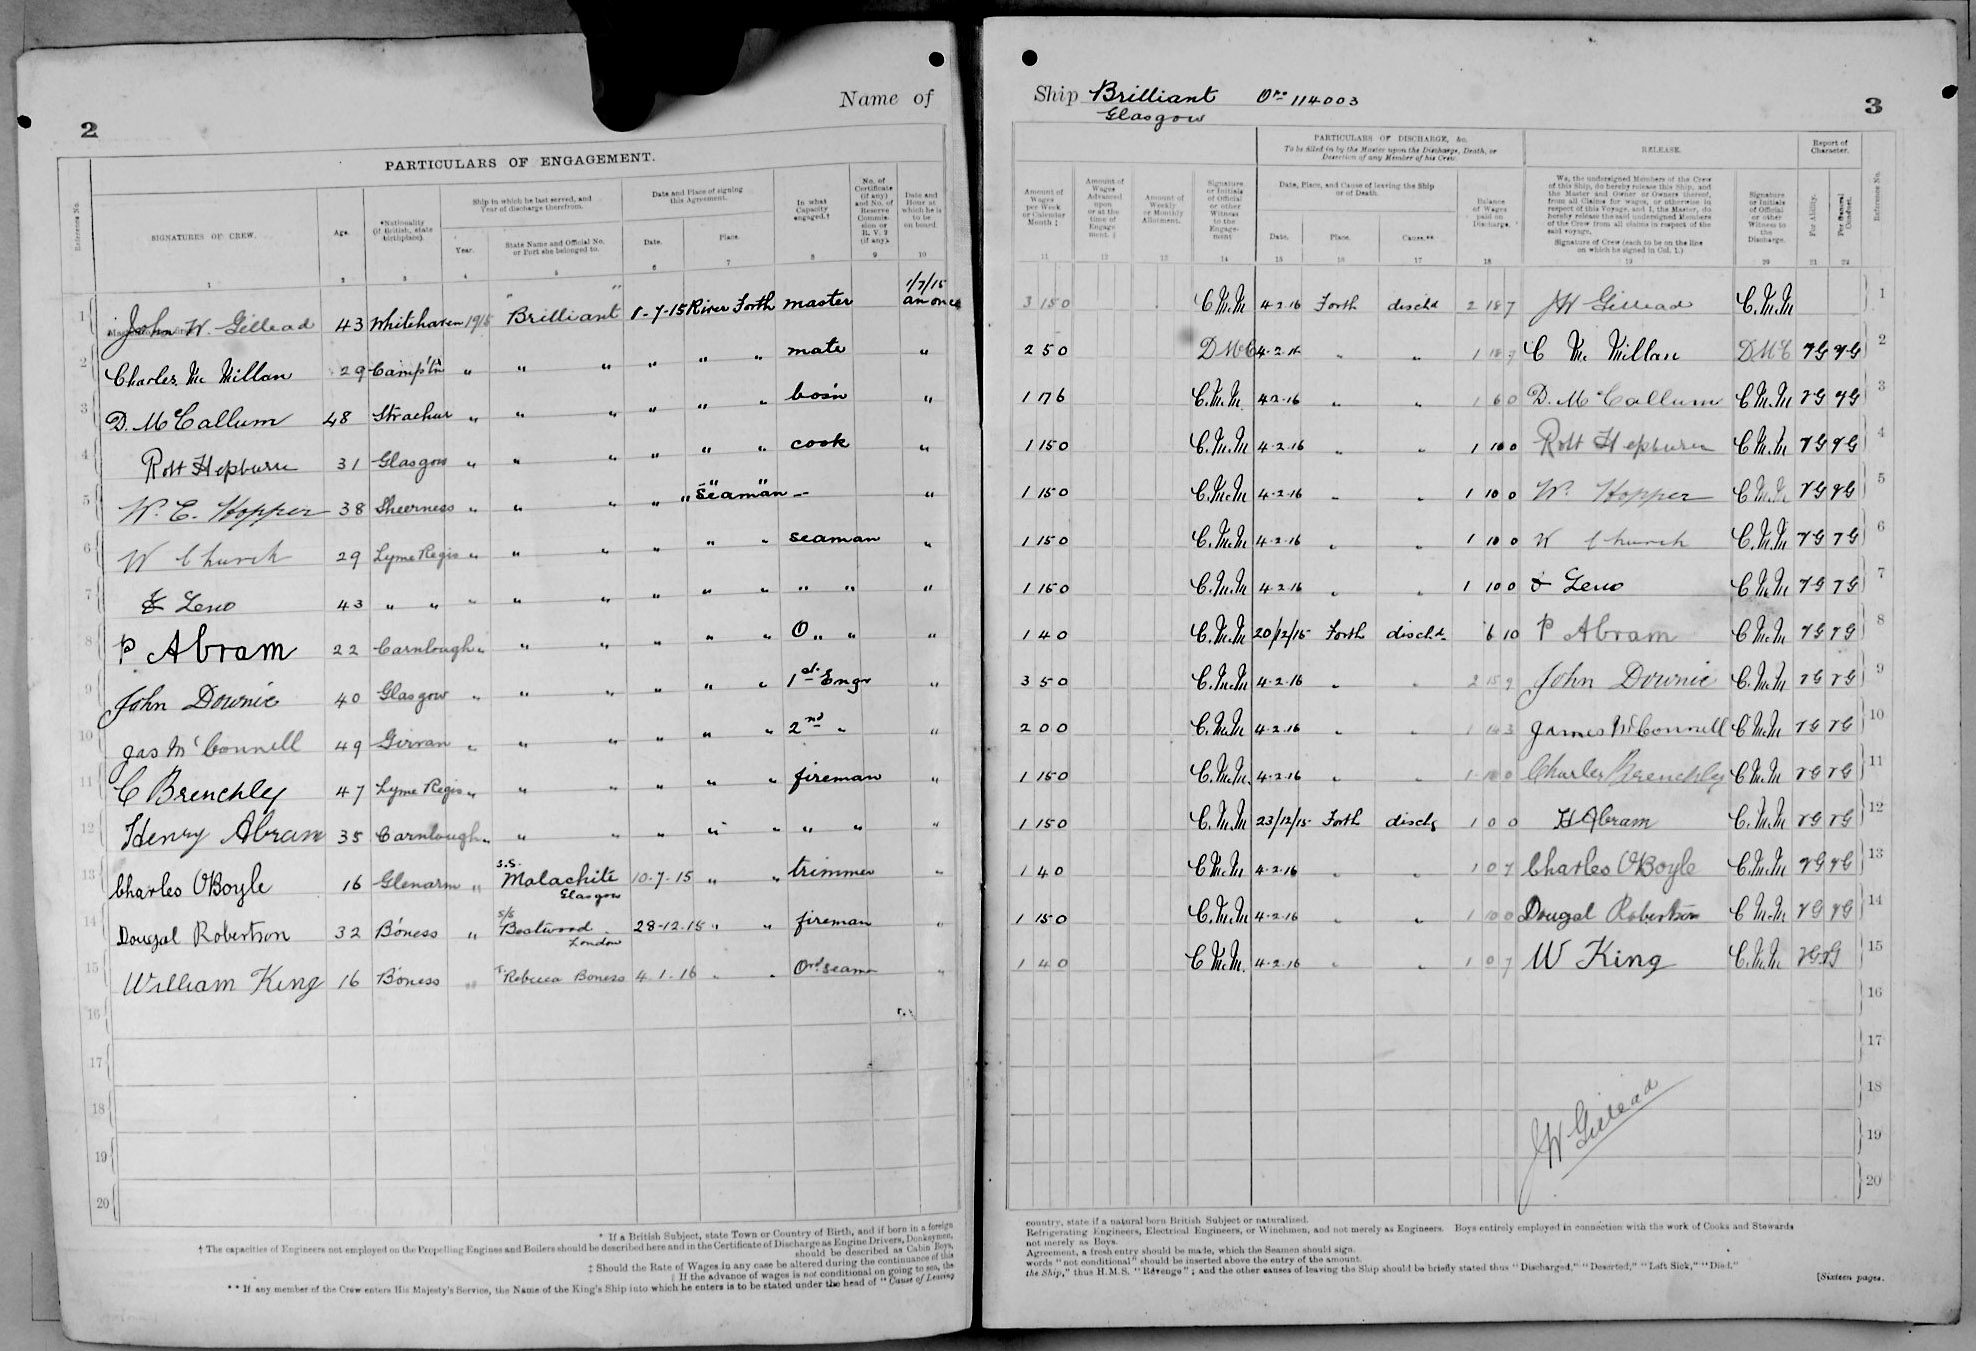 2
Name of
PARTICULARS OF ENGAGEMENT.
Reference No.
SIGNATURES OF CREW.
Age.
*Nationality (if British, state birthplace).
Ship in which he last served, and Year of discharge therefrom.
Year.
State Name and Official No. or Port she belonged to.
Date and Place of signing this Agreement.
Date.
Place.
In what Capacity engaged.†
No. of Certificate (if any) and No. of Reserve Commission or R. V. 2 (if any).
Date and Hour at which he is to be on board.
1 2 3 4 5 6 7 8 9 10
1 John W. Gillead 43 Whitehaven 1915 Brilliant 8-7-15 River Forth master 1/7/15 an once
2 Charles Mc Millan 29 Camp'tn " " " " " " mate "
3 D. McCallum 48 Strachur " " " " " " bosn "
4 Robt Hepburn 31 Glasgow " " " " " " cook "
5 W. E. Hopper 38 Sheerness " " " " " " seaman "
6 W Church 29 Lyme Regis " " " " " " seaman "
7 Leno 43 " " " " " " " " " " "
8 P Abram 22 Carnlough " " " " " " O " " "
9 John Downie 40 Glasgow " " " " " " 1st Engr "
10 Jas McConnell 49 Girvan " " " " " " 2nd " "
11 C Brenchley 47 Lyme Regis " " " " " " fireman "
12 Henry Abram 35 Carnlough " " " " " " " " "
13 Charles O'Boyle 16 Glenarm " s.s. Malachite Glasgow 10-7-15 " " trimmer "
14 Dougal Robertson 32 Boness " s/s Bestwood London 28-12-15 " " fireman "
15 William King 16 Boness " Rebecca Boness 4-1-16 " " Ord seamn "
16
17
18
19
20
* If a British Subject, state Town or Country of Birth, and if born in a foreign
† The capacities of Engineers not employed on the Propelling Engines and Boilers should be described here and in the Certificate of Discharge as Engine Drivers, Donkeymen,
should be described as Cabin Boys,
‡ Should the Rate of Wages in any case be altered during the continuance of this
If the advance of wages is not conditional on going to sea, the
** If any member of the Crew enters His Majesty's Service, the Name of the King's Ship into which he enters is to be stated under the head of "Cause of Leaving
Ship Brilliant 114003
Glasgow
3
PARTICULARS OF DISCHARGE, &c.
To be filled in by the Master upon the Discharge, Death, or Desertion of any Member of his Crew.
RELEASE.
Report of Character.
Amount of Wages per Week or Calendar Month ‡
Amount of Wages Advanced upon or at the time of Engagement.
Amount of Weekly or Monthly Allotment.
Signature or Initials of Official or other Witness to the Engagement
Date, Place, and Cause of leaving the Ship or of Death.
Date.
Place.
Cause.**
Balance of Wages paid on Discharge.
We, the undersigned Members of the Crew of this Ship, do hereby release this Ship, and the Master and Owner or Owners thereof, from all Claims for wages, or otherwise in respect of this Voyage, and I, the Master, do hereby release the said undersigned Members of the Crew from all claims in respect of the said voyage.
Signature of Crew (each to be on the line on which he signed in Col. 1.)
Signature or Initials of Official or other Witness to the Discharge.
For Ability.
For General Conduct.
Reference No.
11 12 13 14 15 16 17 18 19 20 21 22
3 15 0 C.Mc.M 4-2-16 Forth dischd 2 18 7 JW Gillead C.Mc.M 1
2 5 0 DMcC 4-2-16 " " 1 C Mc Millan DMcC VG VG 2
1 17 6 C.Mc.M. 4-2-16 " " 1 6 0 D. McCallum C.Mc.M VG VG 3
1 15 0 C.Mc.M 4-2-16 " " 1 10 0 Robt Hepburn C Mc.M VG VG 4
1 15 0 C.Mc.M 4-2-16 " " 1 10 0 W. Hopper C Mc.M VG VG 5
1 15 0 C.Mc.M 4-2-16 " " 1 10 0 W Church C.Mc.M VG VG 6
1 15 0 C.Mc.M 4-2-16 " " 1 10 0 Leno C.Mc.M VG VG 7
1 4 0 C.Mc.M 20/12/15 Forth dischd 6 10 P Abram C.Mc.M VG VG 8
3 5 0 C.Mc.M 4-2-16 " " 2 15 9 John Downie C.Mc.M VG VG 9
2 0 0 C.Mc.M 4-2-16 " " 1 James McConnell C.Mc.M VG VG 10
1 15 0 C.Mc.M. 4-2-16 " " 1 10 0 Charles Brenchley C.Mc.M VG VG 11
1 15 0 C.Mc.M 23/12/15 Forth dischg 1 0 0 H Abram C.Mc.M VG VG 12
1 4 0 C.Mc.M 4-2-16 " " 1 0 7 Charles O'Boyle C.Mc.M VG VG 13
1 15 0 C.Mc.M 4-2-16 " " 1 10 0 Dougal Robertson C Mc.M VG VG 14
1 4 0 C Mc.M. 4-2-16 " " 1 0 7 W King C.Mc.M VG VG 15
16
17
18
JW Gillead
19
20
country, state if a natural born British Subject or naturalized.
Refrigerating Engineers, Electrical Engineers, or Winchmen, and not merely as Engineers. Boys entirely employed in connection with the work of Cooks and Stewards
not merely as Boys.
Agreement, a fresh entry should be made, which the Seamen should sign.
words "not conditional" should be inserted above the entry of the amount.
the Ship," thus H.M.S. "Revenge"; and the other causes of leaving the Ship should be briefly stated thus "Discharged," "Deserted," "Left Sick," "Died."
[Sixteen pages.